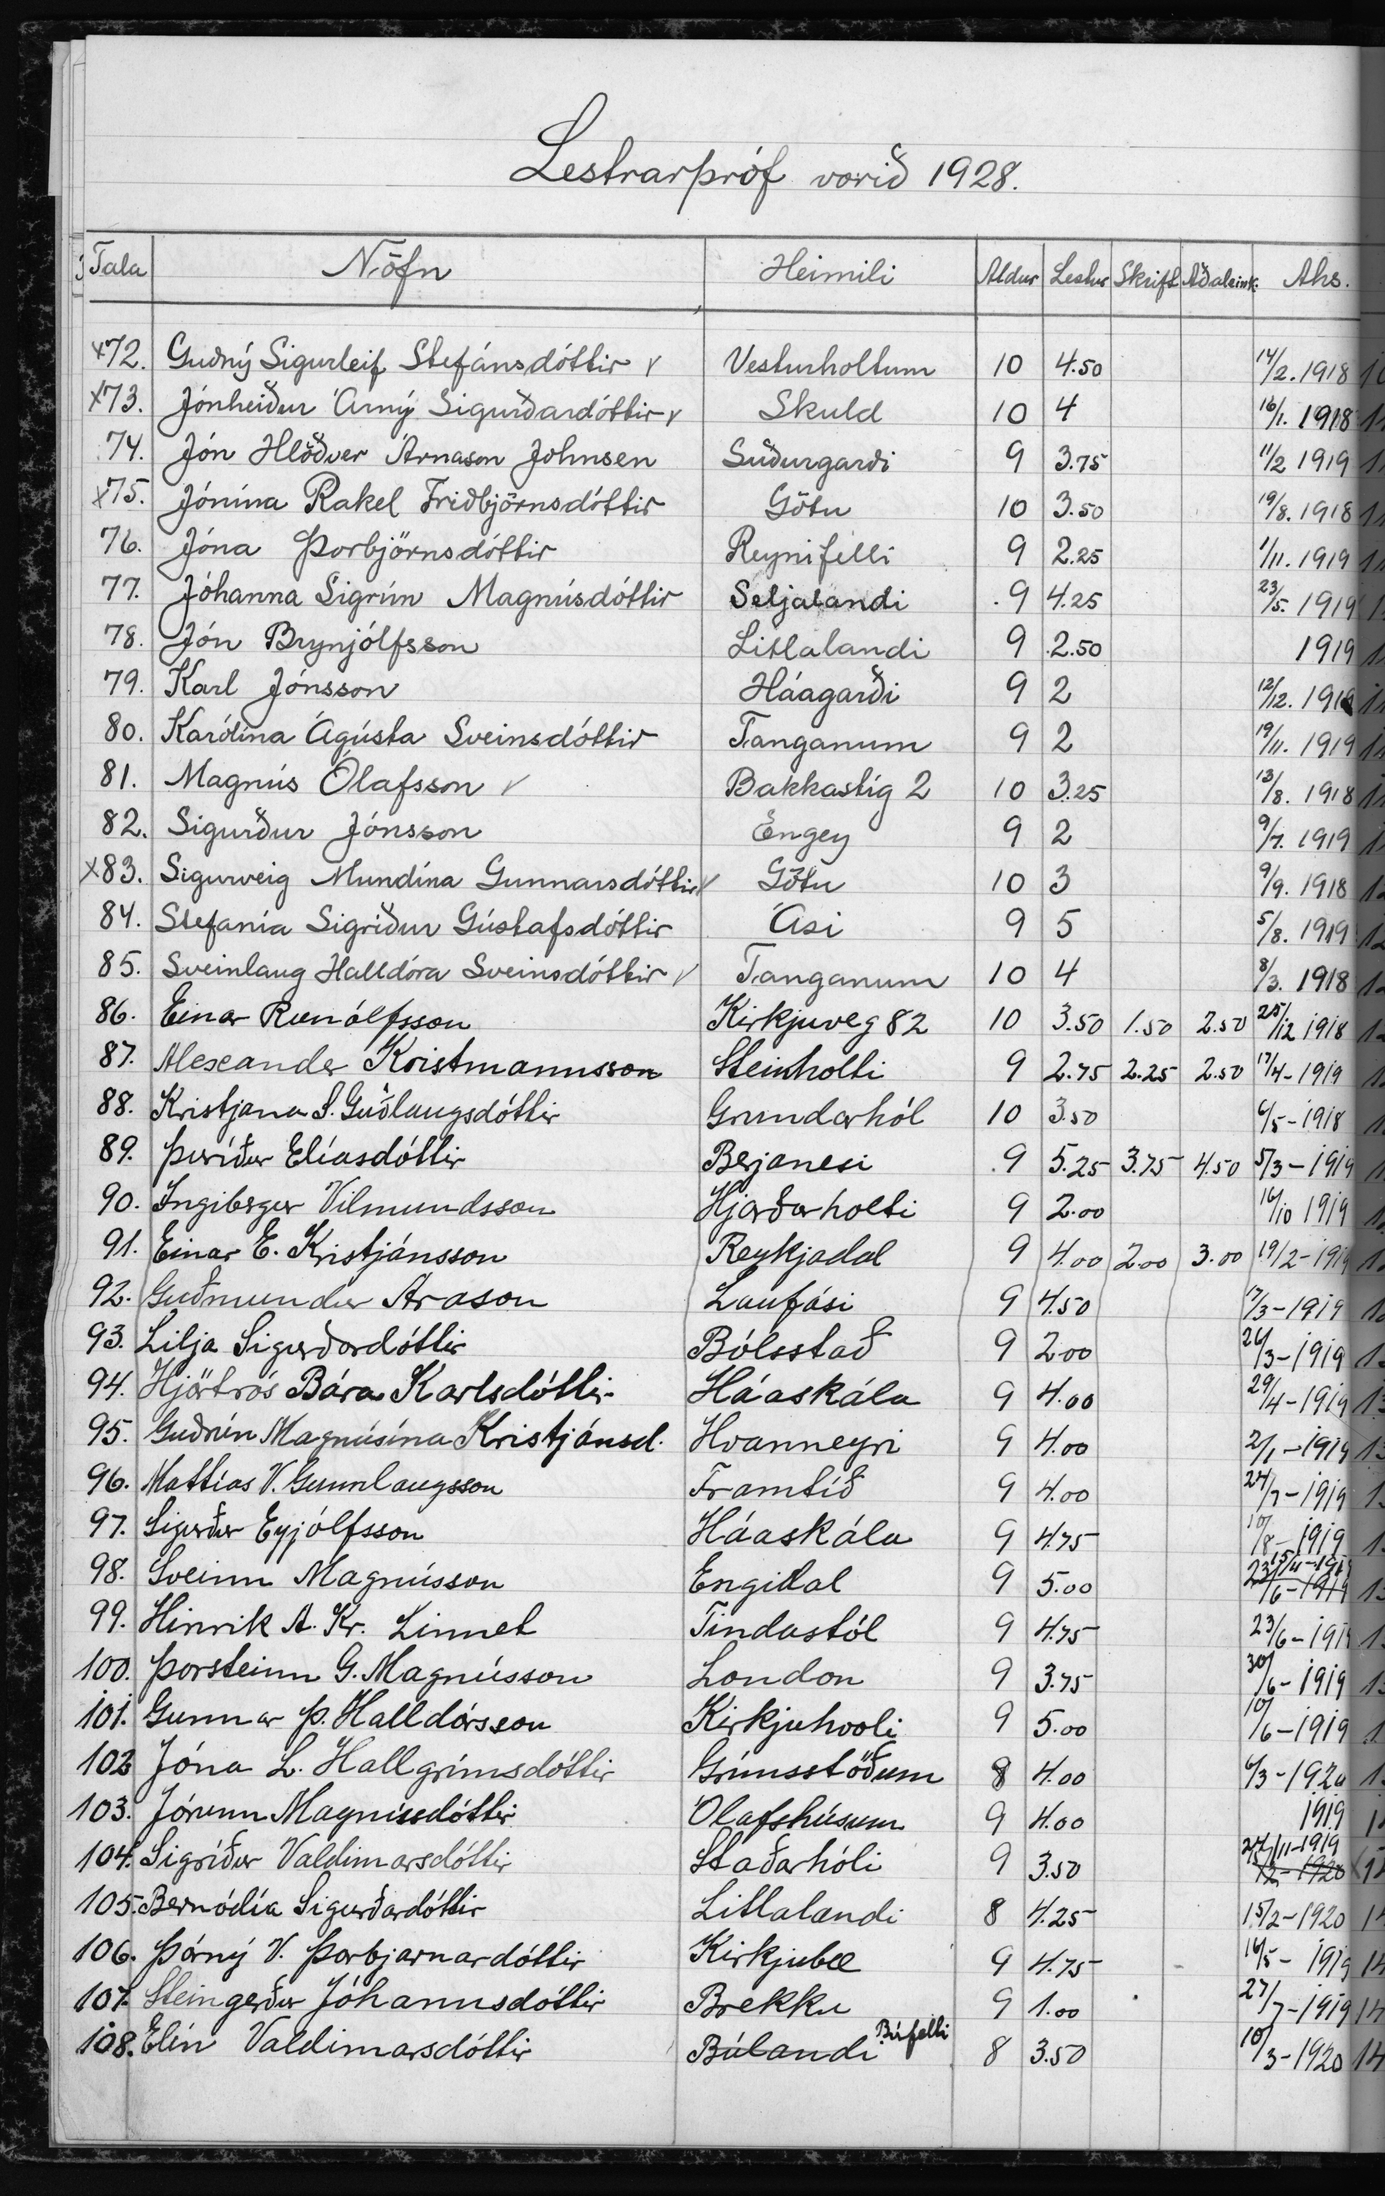 Lestrarpróf vorið 1928.
Tala Nöfn Heimili Aldur Lestur Skrift Aðaleink. Ahs.
x72. Guðný Sigurleif Stefánsdóttir v Vesturholtum 10 4.50 14/2. 1918
x73. Jónheiður Árný Sigurðardóttir v Skuld 10 4 16/1. 1918
74. Jón Hlöðver Árnason Johnsen Suðurgarði 9 3.75 11/2 1919
x75. Jónína Rakel Friðbjörnsdóttir Götu 10 3.50 19/8. 1918
76. Jóna Þorbjörnsdóttir Reynifelli 9 2.25 1/11. 1919
77. Jóhanna Sigrún Magnúsdóttir Seljalandi 9 4.25 23/5. 1919
78. Jón Brynjólfsson Litlalandi 9 2.50 1919
79. Karl Jónsson Háagarði 9 2 12/12. 1919
80. Karólína Ágústa Sveinsdóttir Tanganum 9 2 19/11. 1919
81. Magnús Ólafsson v Bakkastíg 2 10 3.25 13/8. 1918
82. Sigurður Jónsson Engey 9 2 9/7. 1919
x83. Sigurveig Mundína Gunnarsdóttir v Götu 10 3 9/9. 1918
84. Stefanía Sigríður Gústafsdóttir Ási 9 5 5/8. 1919
85. Sveinlaug Halldóra Sveinsdóttir v Tanganum 10 4 8/3. 1918
86. Einar Runólfsson Kirkjuveg 82 10 3.50 1.50 2.50 25/12 1918
87. Alexander Kristmannsson Steinholti 9 2.75 2.25 2.50 17/4 - 1919
88. Kristjana S. Guðlaugsdóttir Grundarhól 10 3.50 6/5 - 1918
89. Þuríður Elíasdóttir Berjanesi 9 5.25 3.75 4.50 5/3 - 1919
90. Ingibergur Vilmundsson Hjarðarholti 9 2.00 16/10 1919
91. Einar E. Kristjánsson Reykjadal 9 4.00 2.00 3.00 19/2 - 1919
92. Guðmundur Arason Laufási 9 4.50 17/3 - 1919
93. Lilja Sigurðardóttir Bólsstað 9 2.00 26/3 - 1919
94. Hjörtrós Bára Karlsdóttir Háaskála 9 4.00 29/4 - 1919
95. Guðrún Magnúsína Kristjánsd. Hvanneyri 9 4.00 2/1 - 1919
96. Mattías V. Gunnlaugsson Framtíð 9 4.00 24/7 - 1919
97. Sigurður Eyjólfsson Háaskála 9 4.75 10/8 - 1919
98. Sveinn Magnússon Engidal 9 5.00 15/11 - 1919 23/6 - 1919
99. Hinrik A. Kr. Linnet Tindastól 9 4.75 23/6 - 1919
100. Þorsteinn G. Magnússon London 9 3.75 30/6 - 1919
101. Gunnar Þ. Halldórsson Kirkjuhvoli 9 5.00 10/6 - 1919
102 Jóna L. Hallgrímsdóttir Grímsstöðum 8 4.00 6/3 - 1920
103. Jórunn Magnúsdóttir Ólafshúsum 9 4.00 1919
104. Sigríður Valdimarsdóttir Staðarhóli 9 3.50 24/11 - 1919
105. Bernódía Sigurðardóttir Litlalandi 8 4.25 15/2 - 1920
106. Þórný V. Þorbjarnardóttir Kirkjubæ 9 4.75 16/5 - 1919
107. Steingerður Jóhannsdóttir Brekku 9 1.00 27/7 - 1919
108. Elín Valdimarsdóttir Búlandi Búfelli 8 3.50 10/3 - 1920